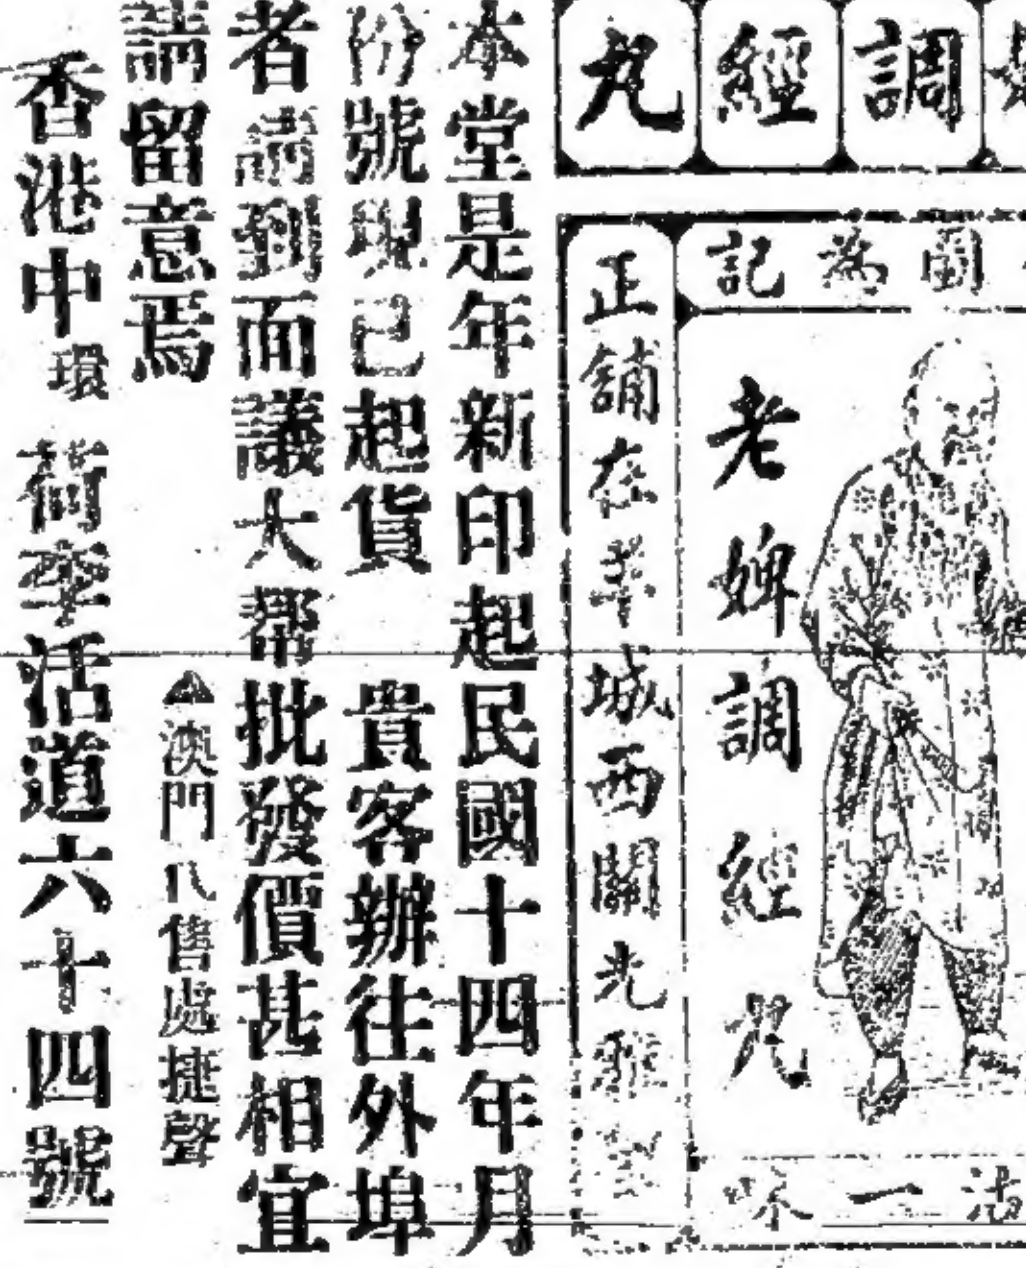 調經丸
圖為記
老婢調經丸
正舖在羊城西關光雅里
本堂是年新印起民國十四年月
份號現已起貨 貴客辦往外埠
者請到面議大帮批發價甚相宜
請留意焉
▲澳門代售處捷聲
香港中環荷李活道六十四號